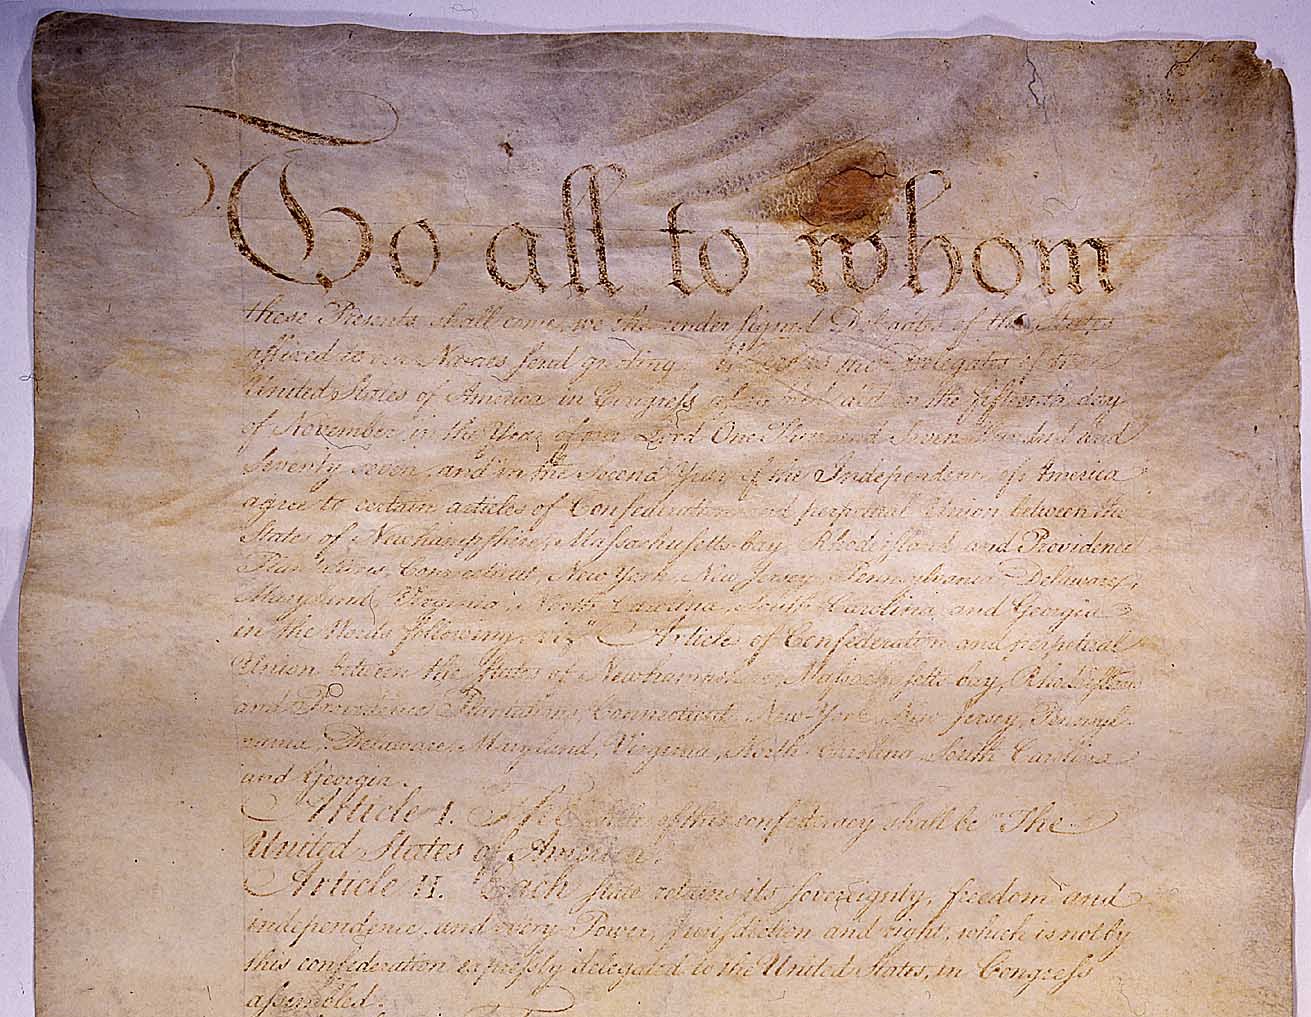 To all to whom
these Presents shall come, we the under signed Delegates of the States
affixed to our Names send greeting. Whereas the Delegates of the
United States of America in Congress assembled did on the fifteenth day
of November in the Year of our Lord One Thousand Seven Hundred and
Seventy seven, and in the Second Year of the Independence of America
agree to certain articles of Confederation and perpetual Union between the
States of Newhampshire, Massachusetts-bay, Rhodeisland and Providence
Plantations, Connecticut, New York, New Jersey, Pennsylvania, Delaware,
Maryland, Virginia, North-Carolina, South-Carolina and Georgia
in the Words following, viz. Articles of Confederation and perpetual
Union between the States of Newhampshire, Massachusetts-bay, Rhodeisland
and Providence Plantations, Connecticut, New-York, New-Jersey, Pennsyl
vania, Delaware, Maryland, Virginia, North-Carolina, South-Carolina
and Georgia.
Article I. The Stile of this confederacy shall be "The
United States of America.
Article II. Each state retains its sovereignty, freedom and
independence, and every Power, Jurisdiction and right, which is not by
this confederation expressly delegated to the United States, in Congress
assembled.